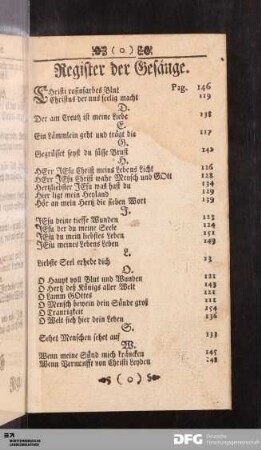 ( o )
Register der Gesänge.
Christi rosinfarbes Blut Pag. 146
Christus der uns seelig macht 119
D.
Der am Creutz ist meine Liebe 138
E.
Ein Lämmlein geht und trägt die 117
G.
Gegrüsset seyst du süsse Brust 142
H.
HErr JEsu Christ meins Lebens Licht 126
HErr JEsu Christ wahr Mensch und GOtt 128
Hertzliebster JEsu was hast du 134
Hier ligt mein Heyland 129
Hör an mein Hertz die sieben Wort 139
J.
JEsu deine tieffe Wunden 113
JEsu der du meine Seele 124
JEsu du mein liebstes Leben 151
JEsu meines Lebens Leben 149
L.
Liebste Seel erhebe dich 13
O.
O Haupt voll Blut und Wunden 121
O Hertz deß Königs aller Welt 143
O Lamm GOttes 111
O Mensch bewein dein Sünde groß 111
O Traurigkeit 154
O Welt sieh hier dein Leben 136
S.
Sehet Menschen sehet auf 133
W.
Wenn meine Sünd mich kräncken 145
Wenn Vernunfft von Christi Leyden 148
( o )
DFG Deutsche Forschungsgemeinschaft